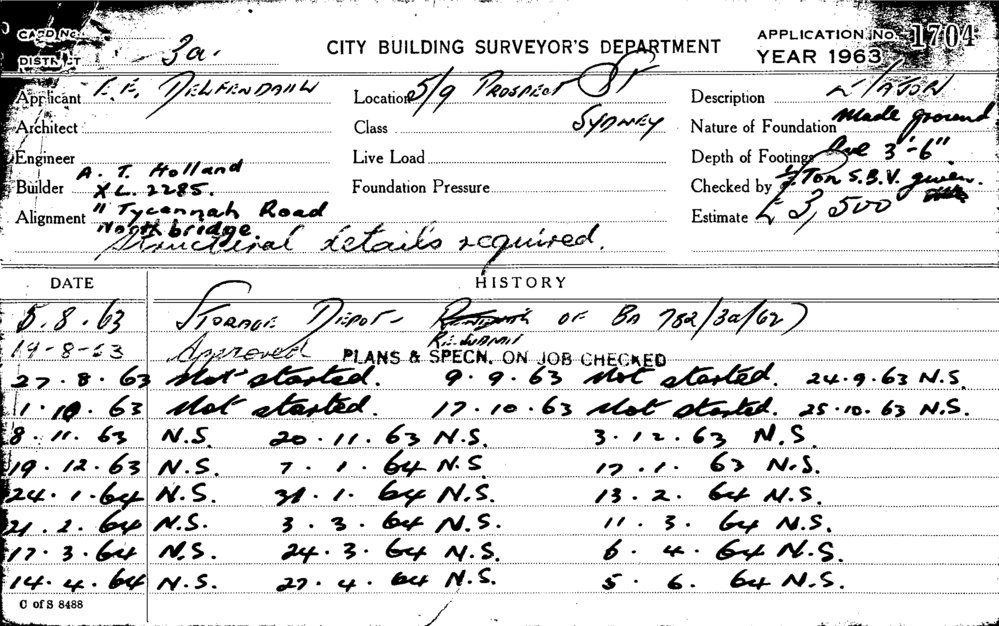 CARD No.
DISTRICT 3a.
CITY BUILDING SURVEYOR'S DEPARTMENT
APPLICATION No. 1704
YEAR 1963
Applicant
Location 5/9 PROSPECT ST
Description
Architect
Class SYDNEY
Nature of Foundation Made ground
Engineer
Live Load
Depth of Footings Ave 3'-6"
Builder A. T. Holland
XL. 2285.
Foundation Pressure
Checked by ½ Ton S.B.V. given.
Alignment 11 Tycannah Road
Northbridge.
Estimate £3,500
Structural details required.
DATE HISTORY
5.8.63 STORAGE DEPOT - OF BA 782/3a/62)
14-8-63 Approved PLANS & SPECN. ON JOB CHECKED
27.8.63 Not started. 9.9.63 Not started. 24.9.63 N.S.
1.10.63 Not started. 17.10.63 Not started. 25.10.63 N.S.
8.11.63 N.S. 20.11.63 N.S. 3.12.63 N.S.
19.12.63 N.S. 7.1.64 N.S 17.1.63 N.S.
24.1.64 N.S. 31.1.64 N.S. 13.2.64 N.S.
21.2.64 N.S. 3.3.64 N.S. 11.3.64 N.S.
17.3.64 N.S. 24.3.64 N.S. 6.4.64 N.S.
14.4.64 N.S. 27.4.64 N.S. 5.6.64 N.S.
C of S 8488